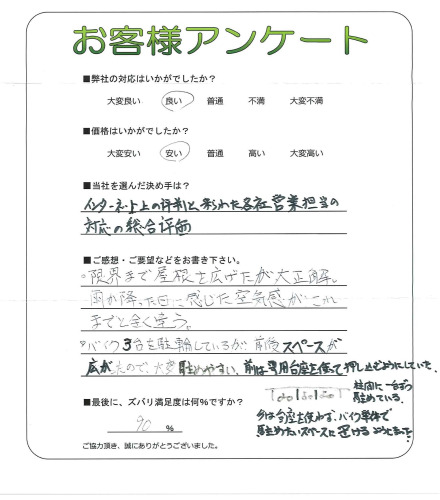 お客様アンケート
■弊社の対応はいかがでしたか?
大変良い 良い 普通 不満 大変不満
■価格はいかがでしたか?
大変安い 安い 普通 高い 大変高い
■当社を選んだ決め手は?
インターネット上の評判と来られた各社営業担当の
対応の総合評価
■ご感想・ご要望などをお書き下さい。
○限界まで屋根を広げたが大正解。
雨が降った日に感じた空気感がこれ
までと全く違う。
○バイク3台を駐輪しているが、前後スペースが
広がったので、大変駐めやすい。前は専用台座を使って押し込むようにしていた。
柱間に一台ずつ
駐めている。
今は台座を使わず、バイク単体で
駐めたいスペースに置けるようになった
■最後に、ズバリ満足度は何%ですか?
90 %
ご協力頂き、誠にありがとうございました。